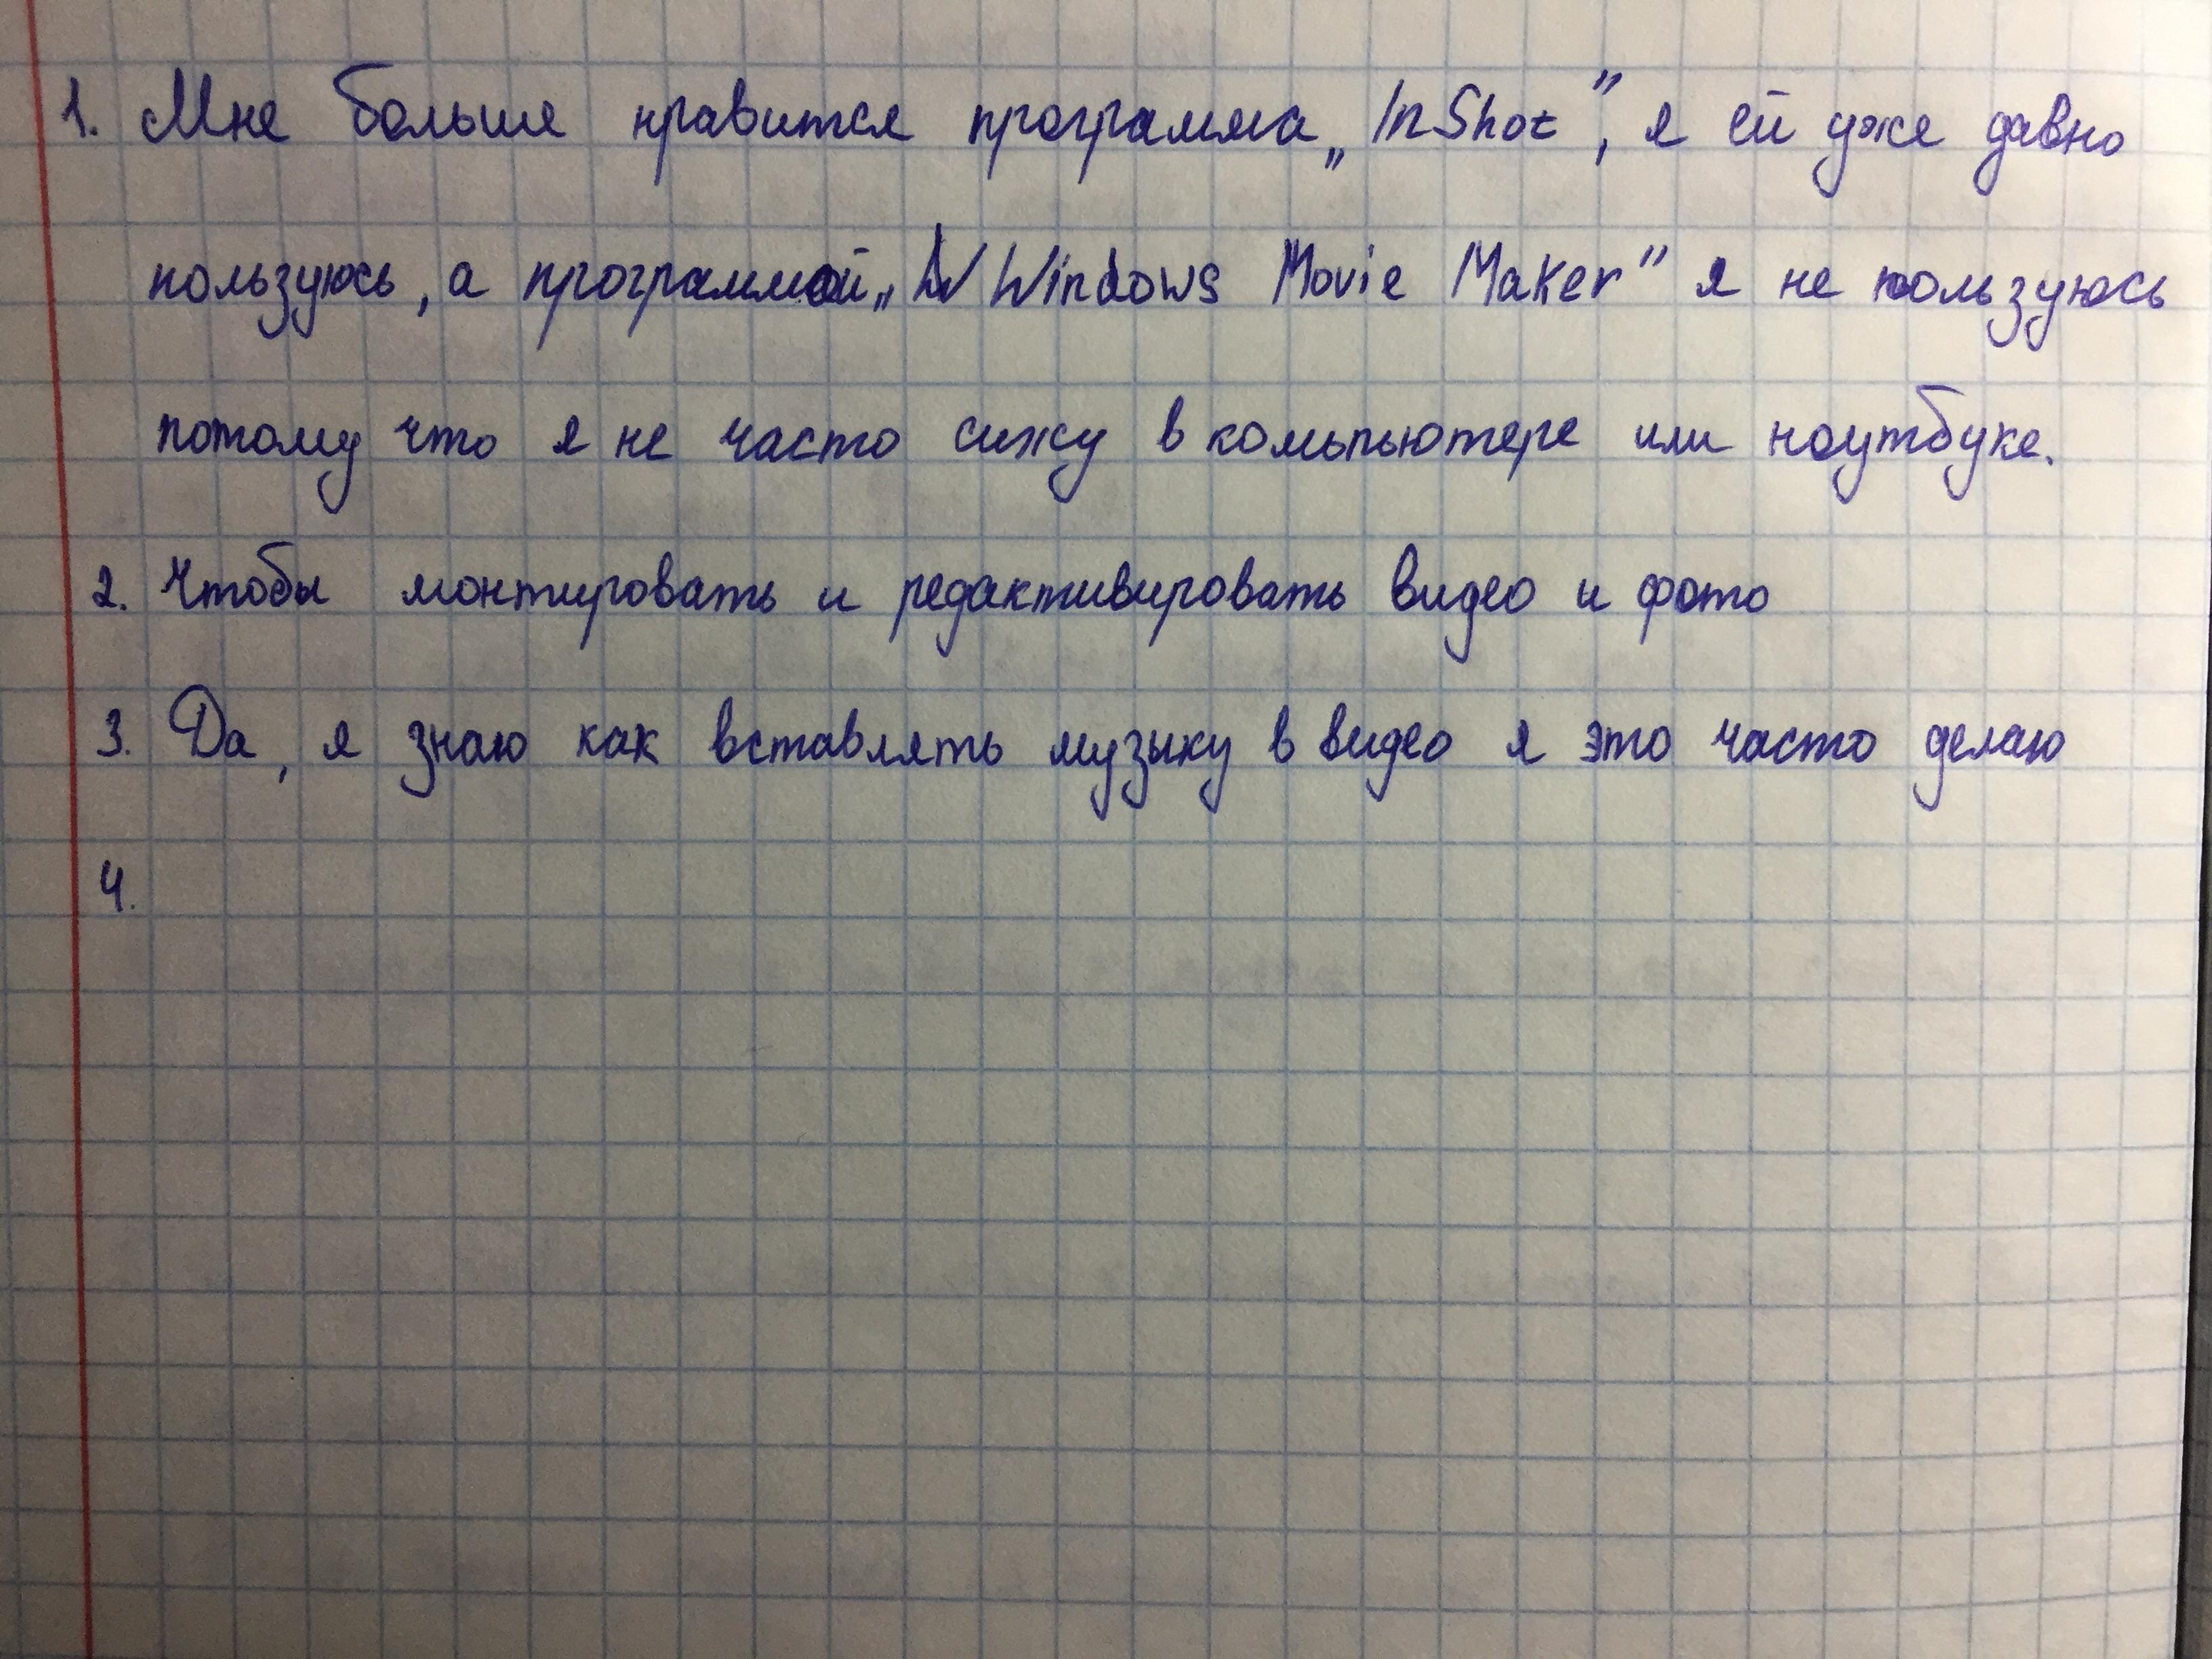 1. Мне больше нравится программа „InShot”, я ей уже давно
пользуюсь, а программой „Windows Movie Maker” я не пользуюсь
потому что я не часто сижу в компьютере или ноутбуке.
2. Чтобы монтировать и редактивировать видео и фото
3. Да, я знаю как вставлять музыку в видео я это часто делаю
4.